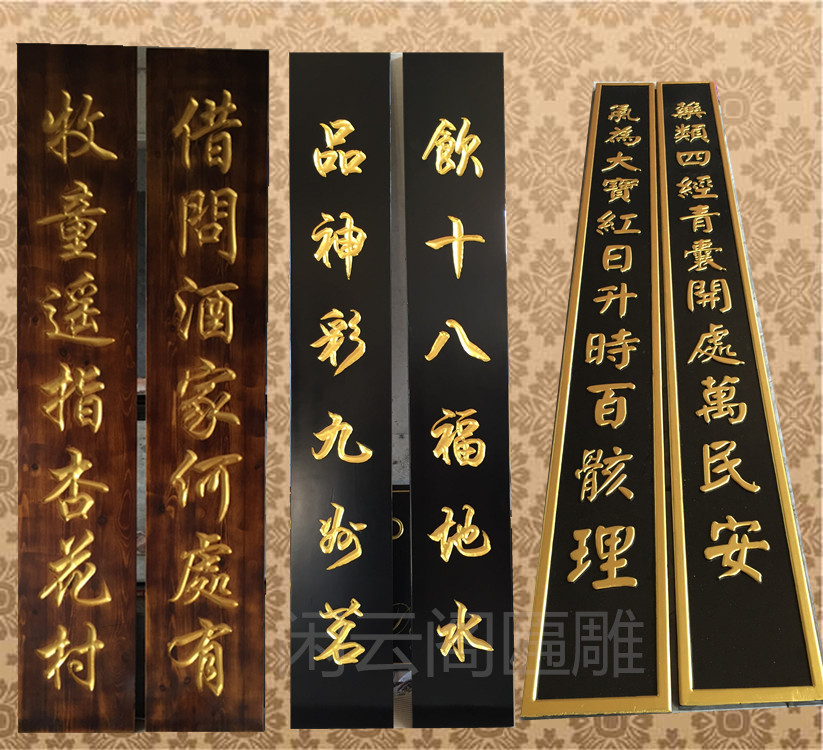 藥類四經青囊開處萬民安
氣為大寶紅日升時百骸理
飲十八福地水
品神彩九州茗
借問酒家何處有
牧童遥指杏花村
闲云阁匾雕